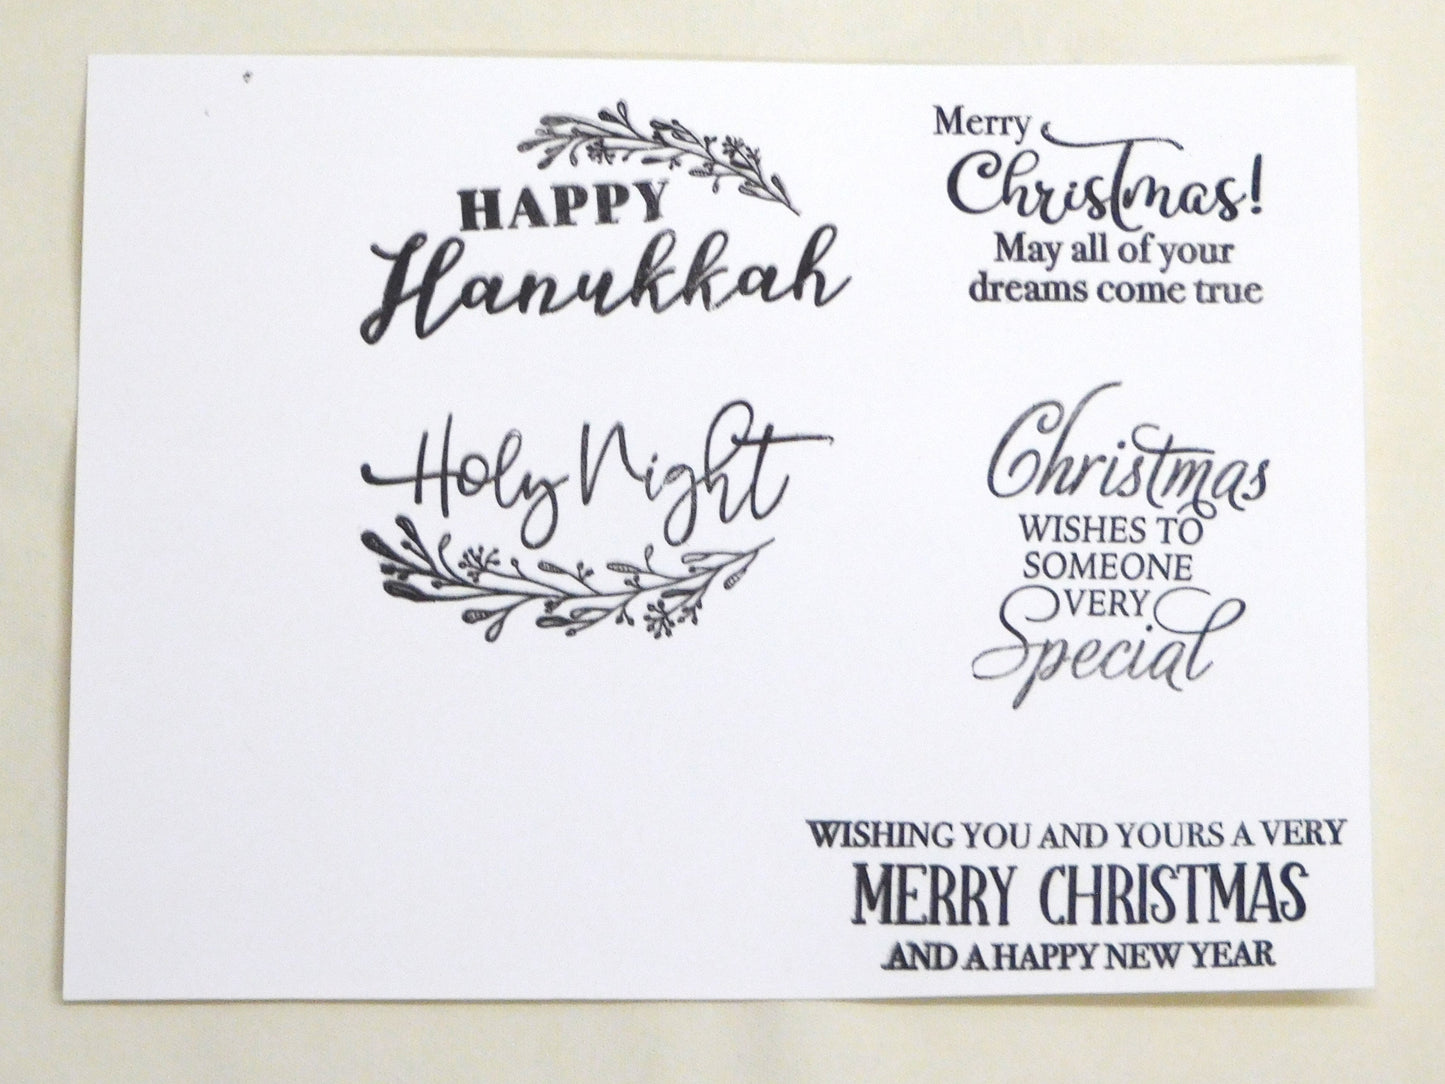 HAPPY
Hanukkah
Holy Night
Merry
Christmas!
May all of your
dreams come true
Christmas
WISHES TO
SOMEONE
VERY
Special
WISHING YOU AND YOURS A VERY
MERRY CHRISTMAS
AND A HAPPY NEW YEAR